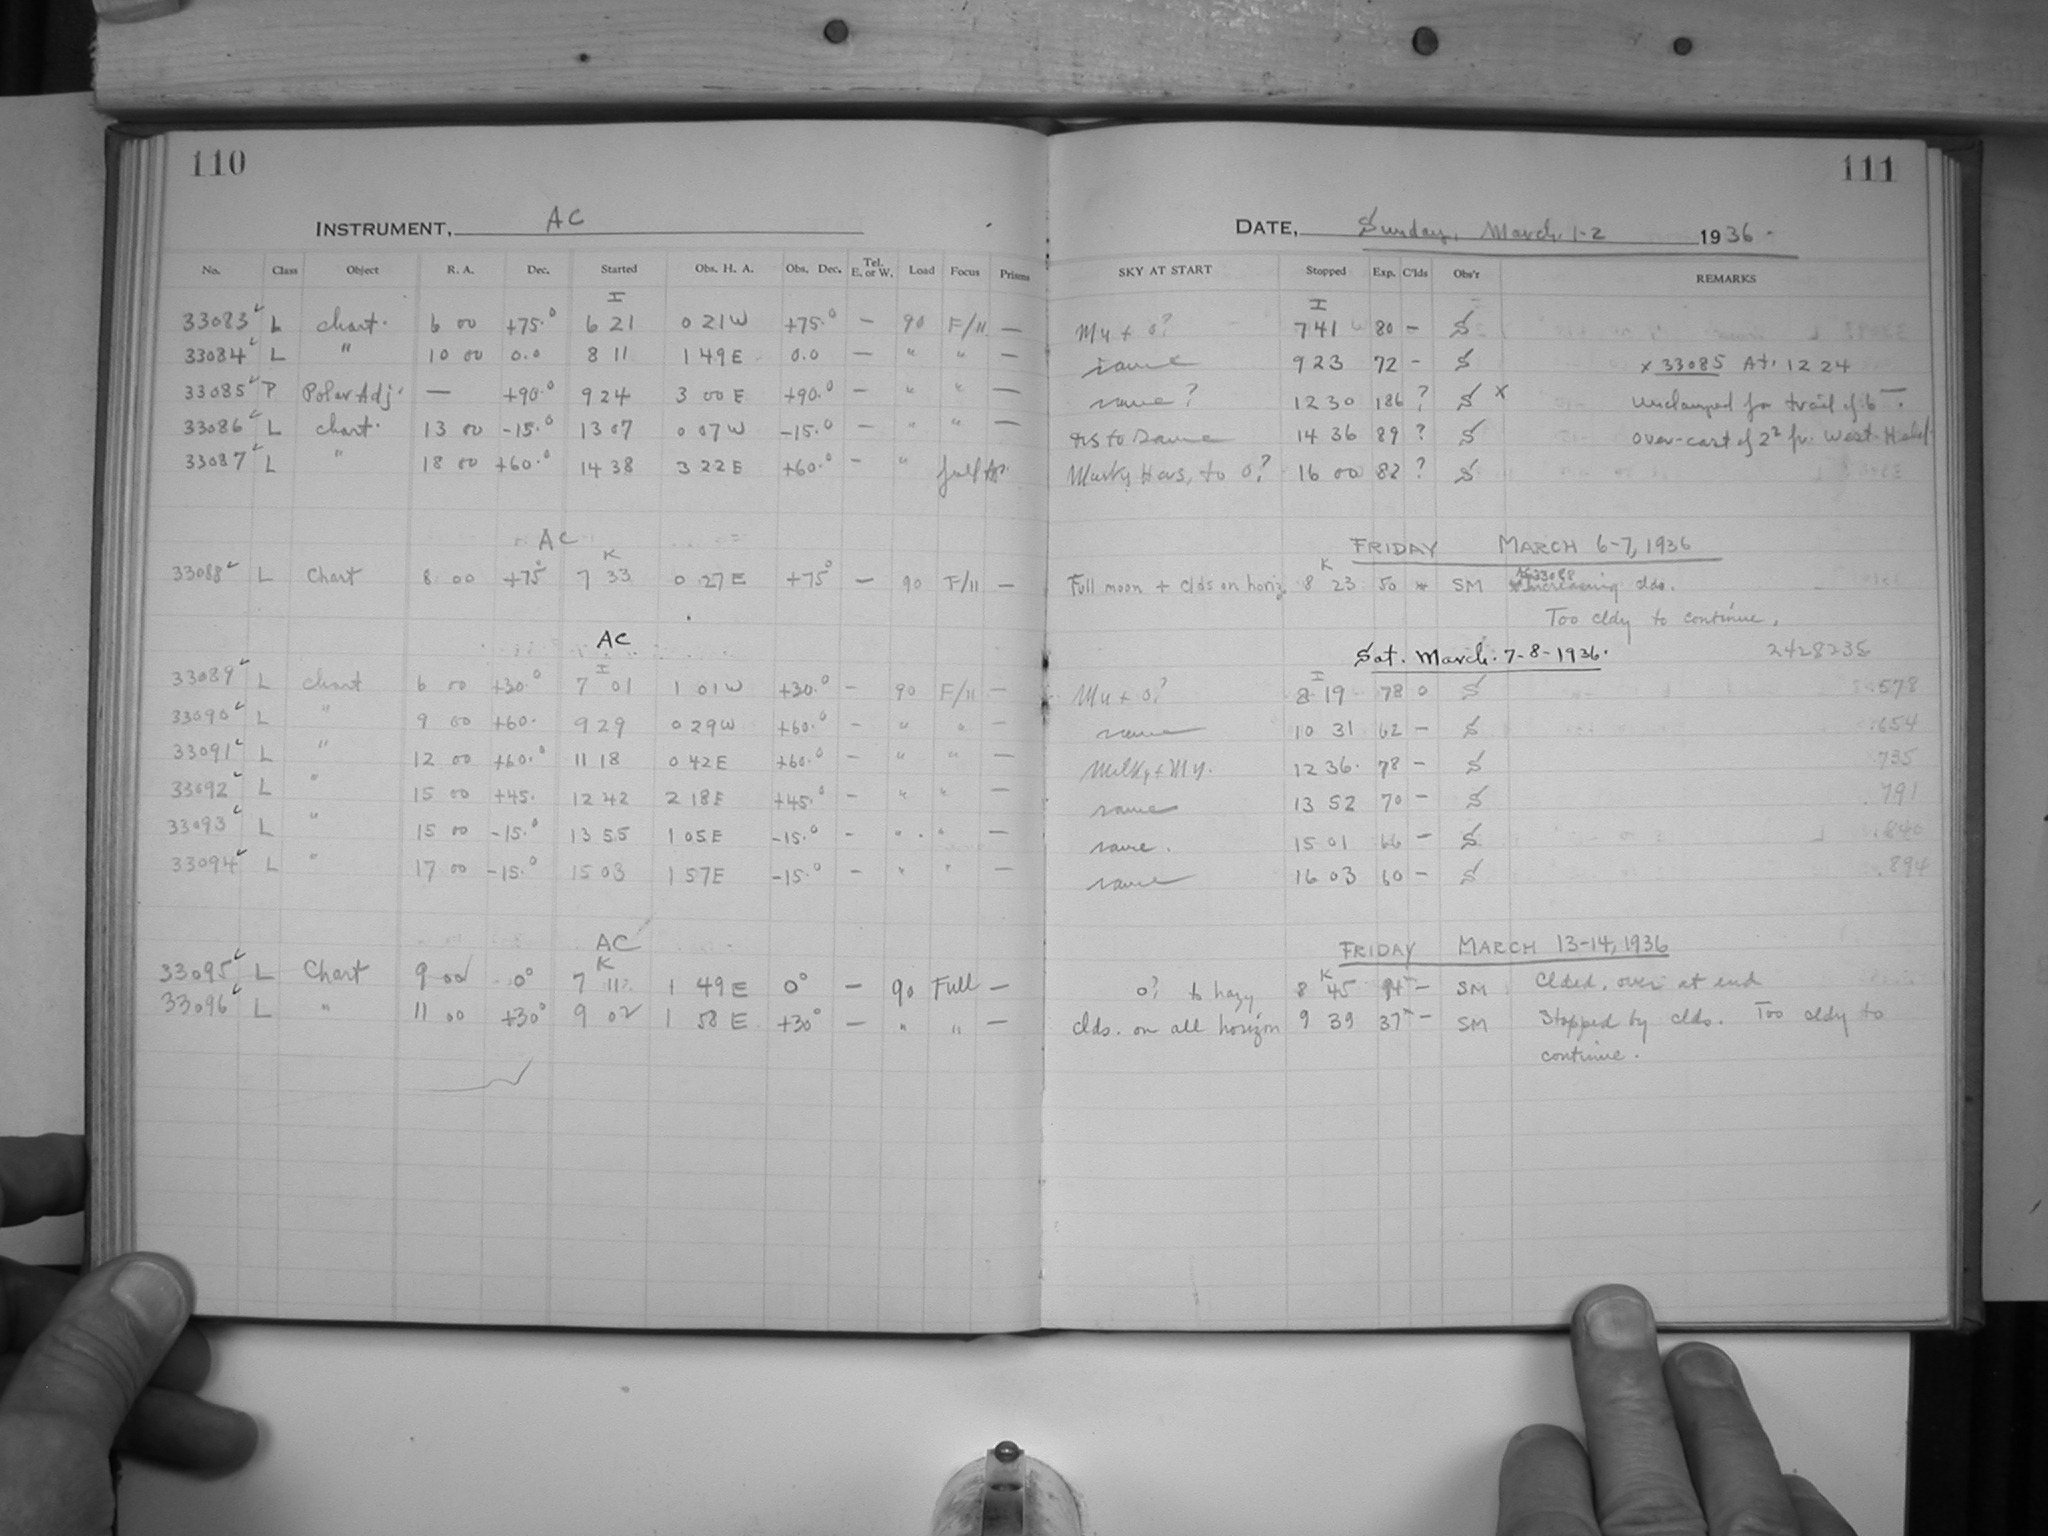 110
INSTRUMENT, AC
No. Class Object R. A. Dec. Started Obs. H. A. Obs. Dec. Tel. E. or W. Load Focus Prisms
I
33083 L Chart. 6 00 +75.° 6 21 0 21 W +75.° — 90 F/11 —
33084 L " 10 00 0.0 8 11 1 49 E 0.0 — " " —
33085 P Polar Adj. — +90.° 9 24 3 00 E +90.° — " " —
33086 L Chart. 13 00 -15.° 13 07 0 07 W -15.° — " " —
33087 L " 18 00 +60.° 14 38 3 22 E +60.° — " full Ap.
AC
K
33088 L Chart 8 00 +75° 7 33 0 27 E +75° — 90 F/11 —
AC
I
33089 L Chart 6 00 +30.° 7 01 1 01 W +30.° — 90 F/11 —
33090 L " 9 00 +60. 9 29 0 29 W +60.° — " " —
33091 L " 12 00 +60.° 11 18 0 42 E +60.° — " " —
33092 L " 15 00 +45. 12 42 2 18 E +45.° — " " —
33093 L " 15 00 -15.° 13 55 1 05 E -15.° — " " —
33094 L " 17 00 -15.° 15 03 1 57 E -15.° — " " —
AC
K
33095 L Chart 9 00 0° 7 11 1 49 E 0° — 90 Full —
33096 L " 11 00 +30° 9 02 1 58 E +30° — " " —
111
DATE, Sunday, March 1-2 1936.
SKY AT START Stopped Exp. C'lds Obs'r REMARKS
I
My + 0? 7 41 80 — S
same 9 23 72 — S x 33085 At. 12 24
same? 12 30 186 ? S x unclamped for trail of 6
to same 14 36 89 ? S over-cast of fr. West
Murky to 0? 16 00 82 ? S
FRIDAY MARCH 6-7, 1936
K
Full moon + clds on horiz. 8 23 50 * SM AC33088 Increasing clds.
Too cldy to continue.
Sat. March. 7-8-1936. 2428235
I
My + 0? 8 19 78 0 S .578
same 10 31 62 — S .654
Milky + My. 12 36. 78 — S .735
same 13 52 70 — S .791
same. 15 01 66 — S .840
same 16 03 60 — S .894
FRIDAY MARCH 13-14, 1936
K
0? to hazy 8 45 94 — SM Clded. over at end
clds. on all horizon 9 39 37 — SM Stopped by clds. Too cldy to
continue.